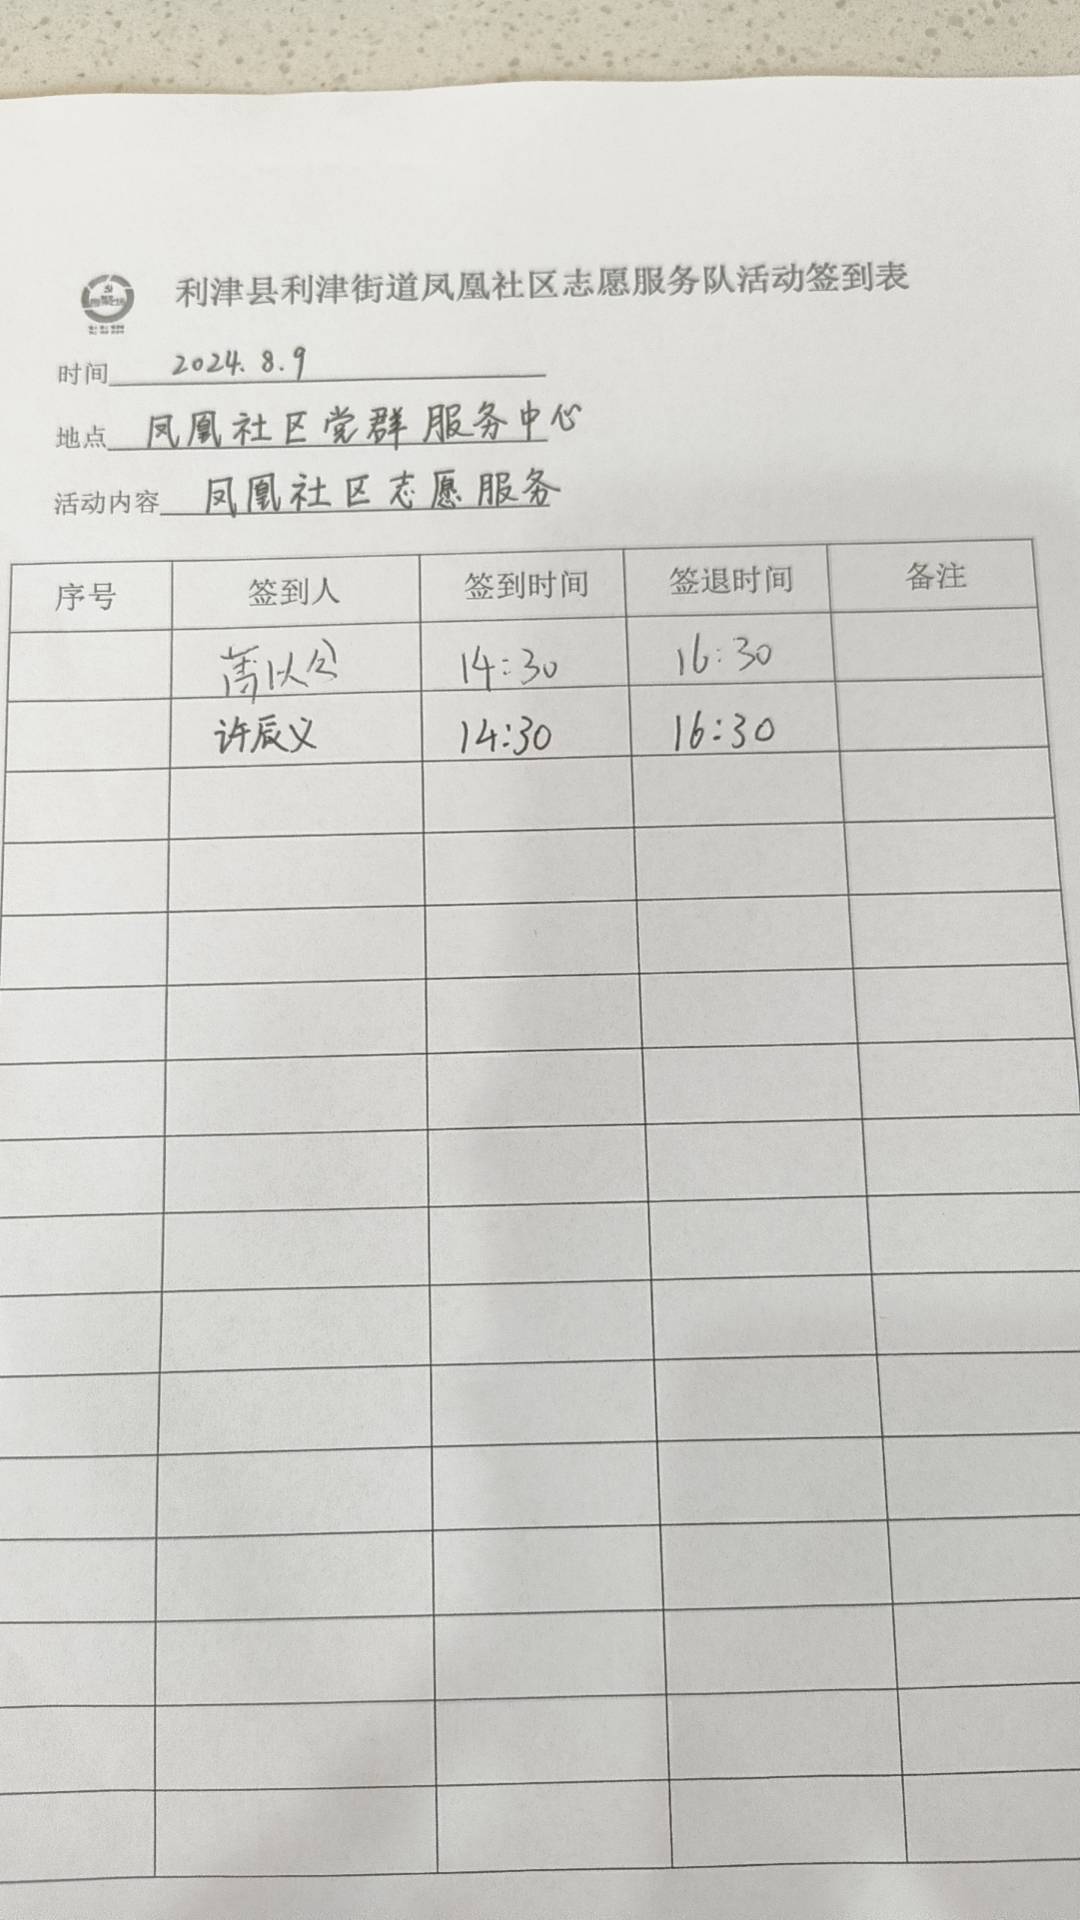 利津县利津街道凤凰社区志愿服务队活动签到表
时间 2024.8.9
地点 凤凰社区党群服务中心
活动内容 凤凰社区志愿服务
序号 签到人 签到时间 签退时间 备注
14:30 16:30
许辰义 14:30 16:30